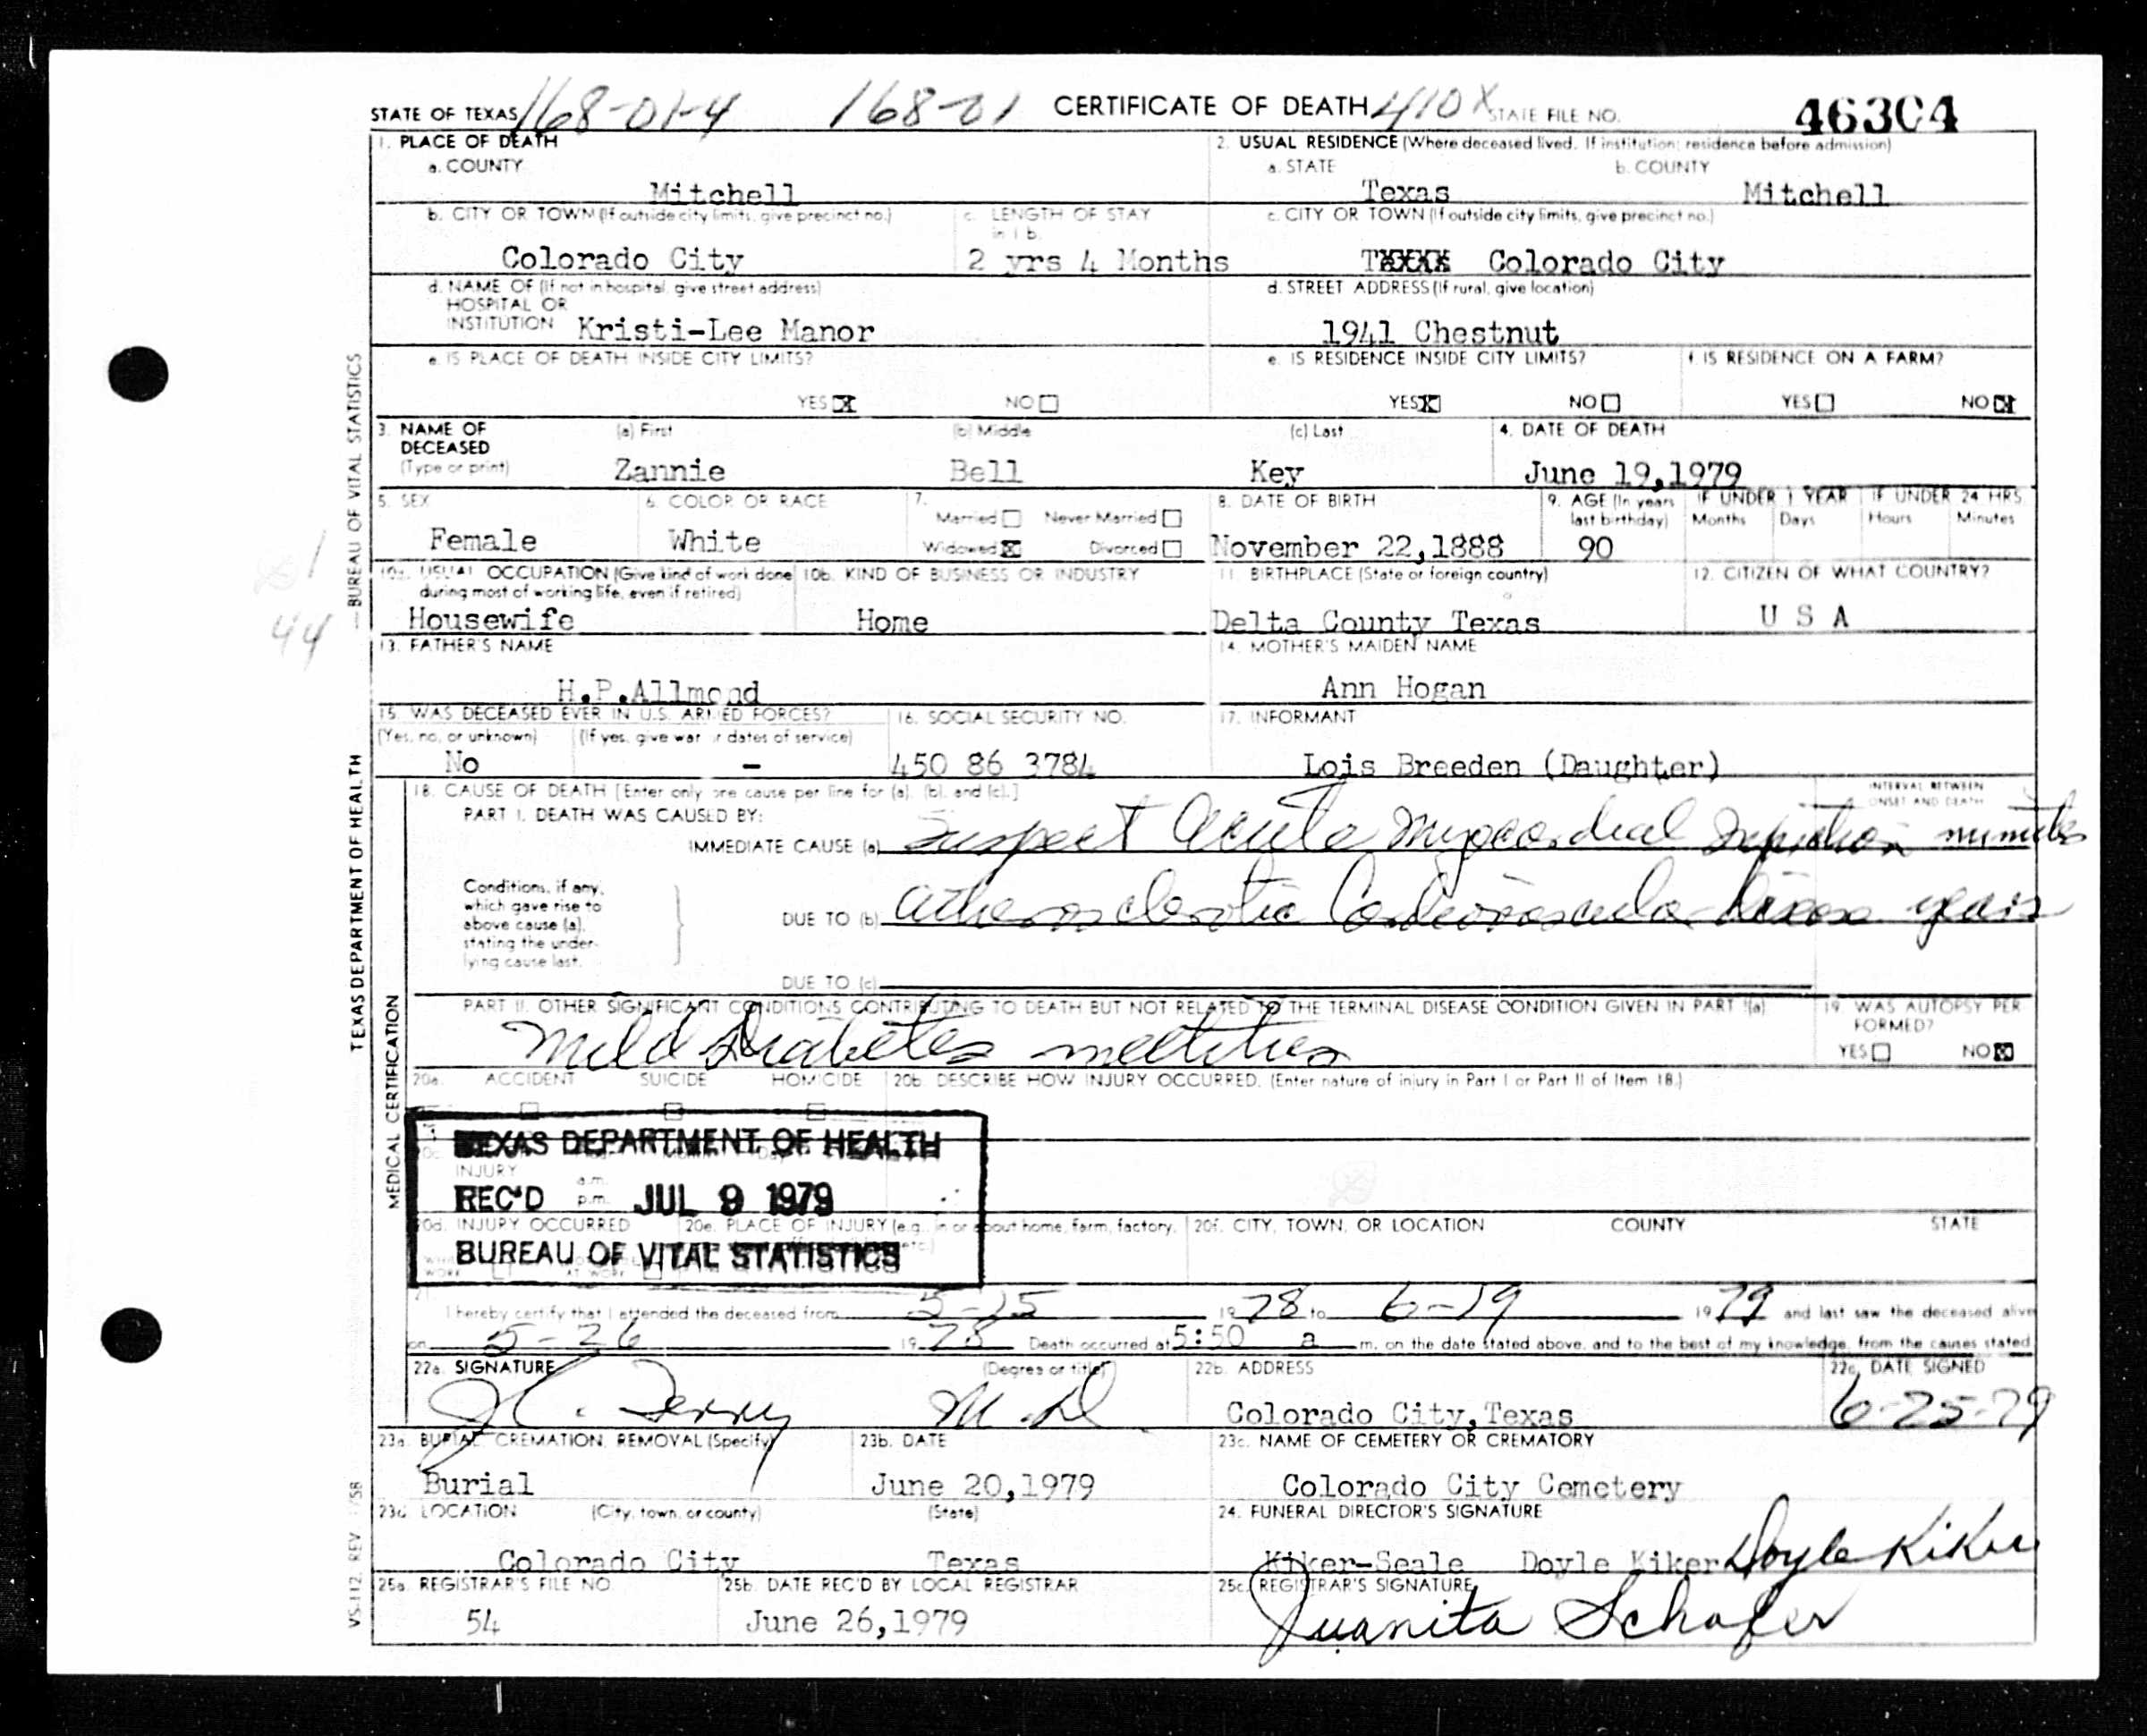 STATE OF TEXAS 168-01-4 168-01 CERTIFICATE OF DEATH 410X STATE FILE NO. 46304
1. PLACE OF DEATH 2. USUAL RESIDENCE (Where deceased lived. If institution: residence before admission)
a. COUNTY a. STATE b. COUNTY
Mitchell Texas Mitchell
b. CITY OR TOWN (If outside city limits, give precinct no.) c. LENGTH OF STAY in 1 b. c. CITY OR TOWN (If outside city limits, give precinct no.)
Colorado City 2 yrs 4 Months Colorado City
d. NAME OF (If not in hospital, give street address) d. STREET ADDRESS (If rural, give location)
HOSPITAL OR
INSTITUTION Kristi-Lee Manor 1941 Chestnut
e. IS PLACE OF DEATH INSIDE CITY LIMITS? e. IS RESIDENCE INSIDE CITY LIMITS? f. IS RESIDENCE ON A FARM?
YES X NO YES X NO YES NO X
3. NAME OF DECEASED (a) First (b) Middle (c) Last 4. DATE OF DEATH
(Type or print) Zannie Bell Key June 19,1979
5. SEX 6. COLOR OR RACE 7. 8. DATE OF BIRTH 9. AGE (In years last birthday) IF UNDER 1 YEAR IF UNDER 24 HRS.
Married Never Married Months Days Hours Minutes
Female White Widowed X Divorced November 22,1888 90
10a. USUAL OCCUPATION (Give kind of work done during most of working life, even if retired) 10b. KIND OF BUSINESS OR INDUSTRY 11. BIRTHPLACE (State or foreign country) 12. CITIZEN OF WHAT COUNTRY?
Housewife Home Delta County Texas U S A
44
13. FATHER'S NAME 14. MOTHER'S MAIDEN NAME
H.P.Allmond Ann Hogan
15. WAS DECEASED EVER IN U.S. ARMED FORCES? 16. SOCIAL SECURITY NO. 17. INFORMANT
(Yes, no, or unknown) (If yes, give war or dates of service)
No - 450 86 3784 Lois Breeden (Daughter)
18. CAUSE OF DEATH [Enter only one cause per line for (a), (b), and (c).] INTERVAL BETWEEN ONSET AND DEATH
PART I. DEATH WAS CAUSED BY:
IMMEDIATE CAUSE (a) Suspect Acute Myocardial Infarction minutes
Conditions, if any, which gave rise to above cause (a), stating the underlying cause last.
DUE TO (b) Atherosclerotic Cardiovascular Disease years
DUE TO (c)
PART II. OTHER SIGNIFICANT CONDITIONS CONTRIBUTING TO DEATH BUT NOT RELATED TO THE TERMINAL DISEASE CONDITION GIVEN IN PART I(a) 19. WAS AUTOPSY PERFORMED?
Mild Diabetes mellitus YES NO X
20a. ACCIDENT SUICIDE HOMICIDE 20b. DESCRIBE HOW INJURY OCCURRED. (Enter nature of injury in Part I or Part II of Item 18.)
TEXAS DEPARTMENT OF HEALTH
INJURY a.m. p.m.
REC'D JUL 9 1979
20d. INJURY OCCURRED 20e. PLACE OF INJURY (e.g., in or about home, farm, factory, 20f. CITY, TOWN, OR LOCATION COUNTY STATE
BUREAU OF VITAL STATISTICS
I hereby certify that I attended the deceased from 5-25 1978 to 6-19 1979 and last saw the deceased alive
on 5-26 1978 Death occurred at 5:50 a m. on the date stated above, and to the best of my knowledge, from the causes stated.
22a. SIGNATURE (Degree or title) 22b. ADDRESS 22c. DATE SIGNED
M.D. Colorado City,Texas 6-25-79
23a. BURIAL, CREMATION, REMOVAL (Specify) 23b. DATE 23c. NAME OF CEMETERY OR CREMATORY
Burial June 20,1979 Colorado City Cemetery
23d. LOCATION (City, town, or county) (State) 24. FUNERAL DIRECTOR'S SIGNATURE
Colorado City Texas Kiker-Seale Doyle Kiker Doyle Kiker
25a. REGISTRAR'S FILE NO. 25b. DATE REC'D BY LOCAL REGISTRAR 25c. REGISTRAR'S SIGNATURE
54 June 26,1979 Juanita Schafer
TEXAS DEPARTMENT OF HEALTH — BUREAU OF VITAL STATISTICS
MEDICAL CERTIFICATION